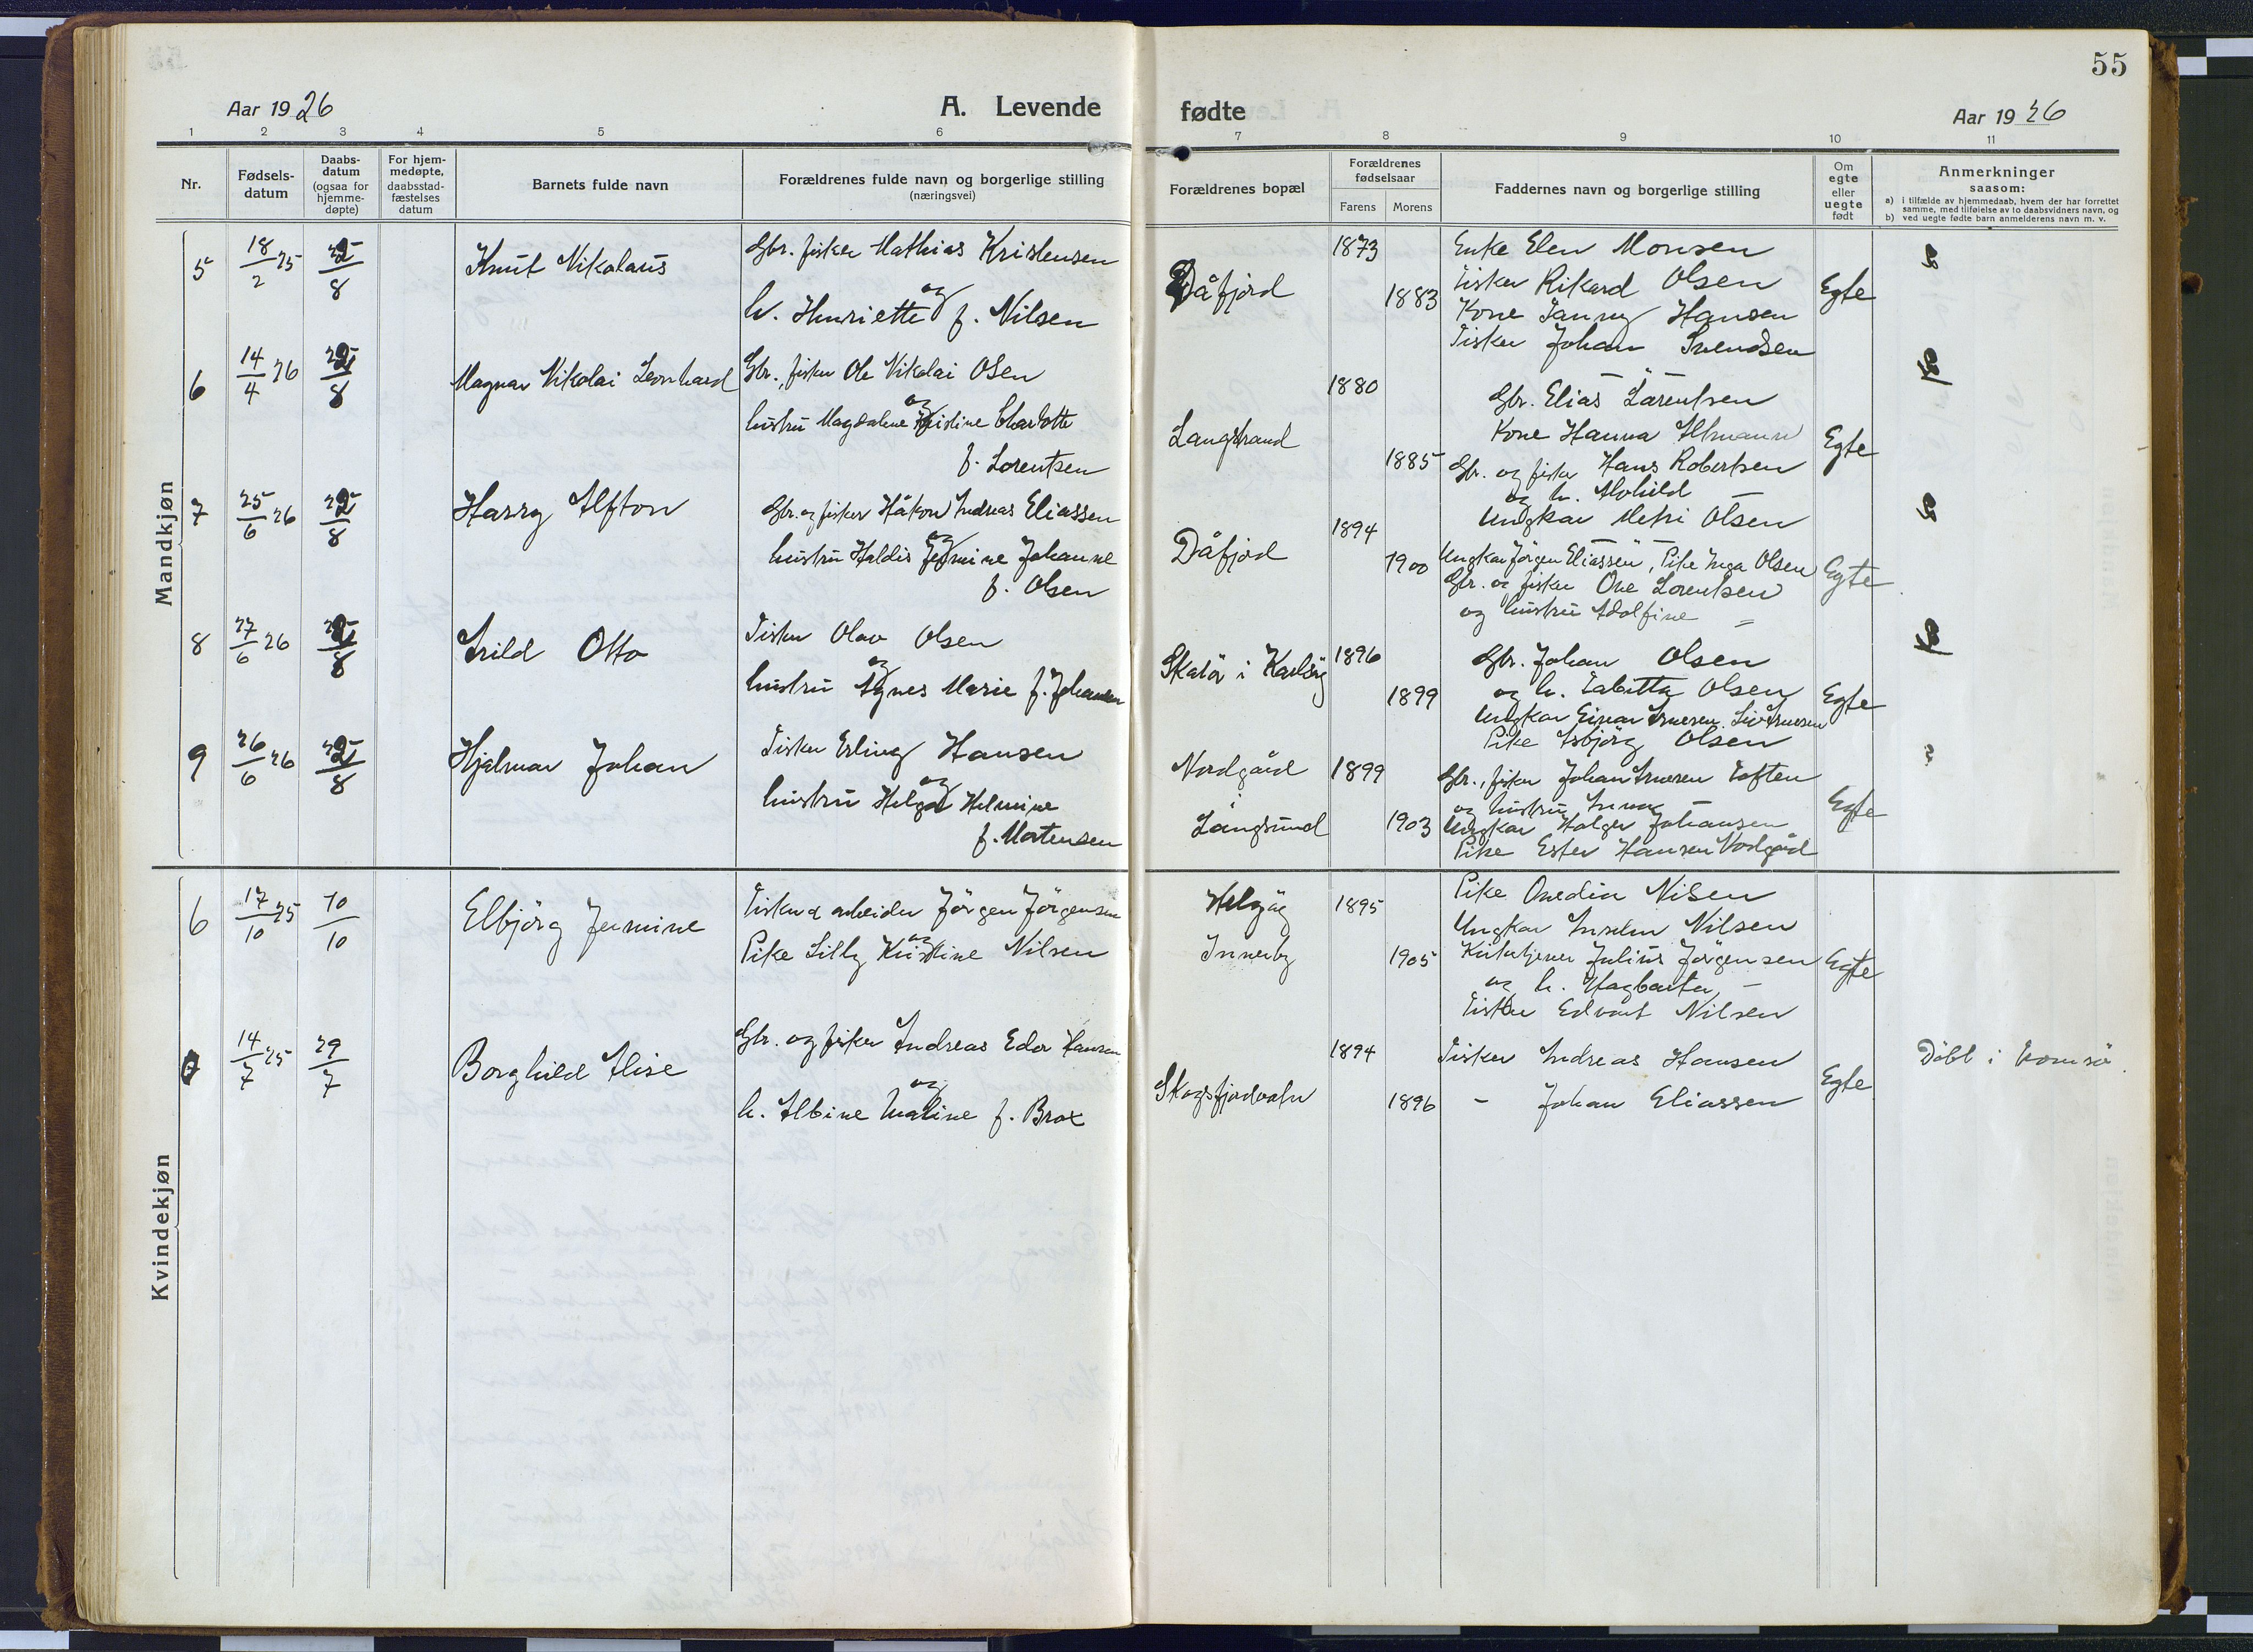 55
Aar 1926
A. Levende fødte
Aar 1926
1 2 3 4 5 6 7 8 9 10 11
Nr.
Fødsels-
datum
Daabs-
datum
(ogsaa for
hjemme-
døpte)
For hjem-
medøpte,
daabsstad-
fæstelses
datum
Barnets fulde navn
Forældrenes fulde navn og borgerlige stilling
(næringsvei)
Forældrenes bopæl
Forældrenes
fødselsaar
Farens Morens
Faddernes navn og borgerlige stilling
Om
egte
eller
uegte
født
Anmerkninger
saasom:
a) i tilfælde av hjemmedaab, hvem der har forrettet
samme, med tilføielse av to daabsvidners navn, og
b) ved uegte fødte barn anmelderens navn m. v.
Mandkjøn
5 18/2 25 22/8 Knut Nikolaus
Gbr. fisker Mathias Kristensen
og
h. Henriette f. Nilsen
Dåfjord
1873
1883
Enke Elen Monsen
Fisker Rikard Olsen
Kone Fanny Hansen
Fisker Johan Svendsen
Egte
6 14/4 26 22/8 Magnar Nikolai Leonhard
Gbr., fisker Ole Nikolai Olsen
og
hustru Magdalene Kristine Charlotte
f. Lorentsen
Langstrand
1880
1885
Gbr. Elias Larentsen
Kone Hanna Altmann
Gbr. og fisker Hans Robertsen
og h. Alvhild —
Ungkar Metri Olsen
Egte
7 25/6 26 22/8 Harry Alfton
Gbr. og fisker Håkon Andreas Eliassen
og
hustru Haldis Jermine Johanne
f. Olsen
Dåfjord
1894
1900
Ungkar Jörgen Eliassen, Pike Inga Olsen
Gbr. og fisker Ove Lorentsen
og hustru Adolfine „
Egte
8 27/6 26 22/8 Arild Otto
Fisker Olav Olsen
og
hustru Agnes Marie f. Johansen
Skatör i Karlsöy
1896
1899
Gbr. Johan Olsen
og h. Tabitta Olsen
Ungkar Einar Arnesen.
Pike Asbjörg Olsen
Egte
9 26/6 26 22/8 Hjalmar Johan
Fisker Erling Hansen
og
hustru Helga Helmine
f. Mortensen
Nordgård
i
Langsund
1899
1903
Gbr., fisker Johan Arnesen Toften
og hustru Anna —
Ungkar Holger Johansen
Pike Ester Hansen Nordgård
Egte
Kvindekjøn
6 17/10 25 10/10 Elbjörg Jermine
Fisker & arbeider Jörgen Jörgensen
og
Pike Lilly Kristine Nilsen
Helgöy
Innerby
1895
1905
Pike Ovedia Nilsen
Ungkar Anselm Nilsen
Kirketjener Julius Jörgensen
og h. Hagbarta —
Fisker Edvart Nilsen
Egte
7 14/7 25 29/7 Borghild Alise
Gbr. og fisker Andreas Edor Hansen
og
h. Albine Maline f. Brox
Skogsfjordvatn
1894
1896
Fisker Andreas Hansen
– Johan Eliassen
Egte
Döbt i Tromsö.